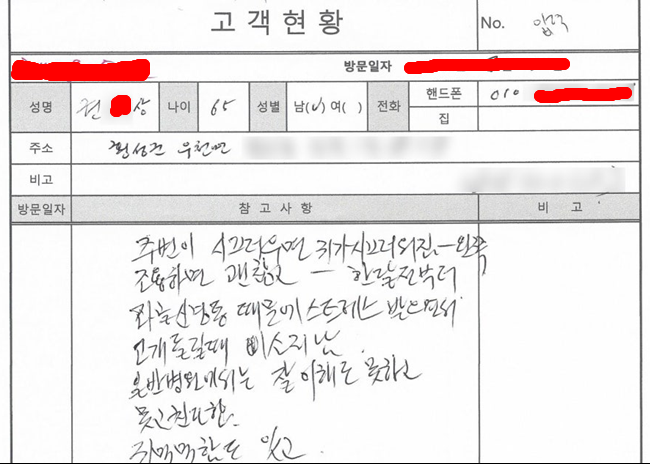 고객현황
No. 압구
방문일자
성명 권 상 나이 65 성별 남(✓) 여( ) 전화 핸드폰 010
집
주소 횡성군 우천면
비고
방문일자 참고사항 비고
주변이 시끄러우면 귀가 시끄러워짐 - 왼쪽
조용하면 괜찮고 - 한달전부터
때문에 스트레스 받으면서
고개돌릴때 소리남
일반병원에서는 잘 이해도 못하고
못고친다함.
귀먹먹함도 있고